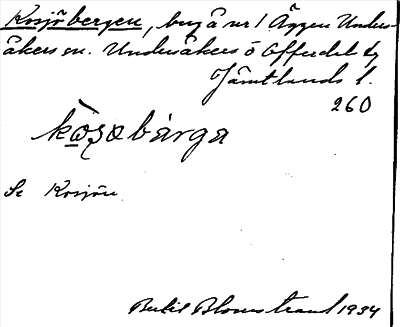 Kosjöbergen, berg å nr 1 Äggen Unders-
åkers sn. Undersåkers o Offerdals tg
Jämtlands l.
260
kòsǝbárga
Se Kosjön
Bertil Blomstrand 1934